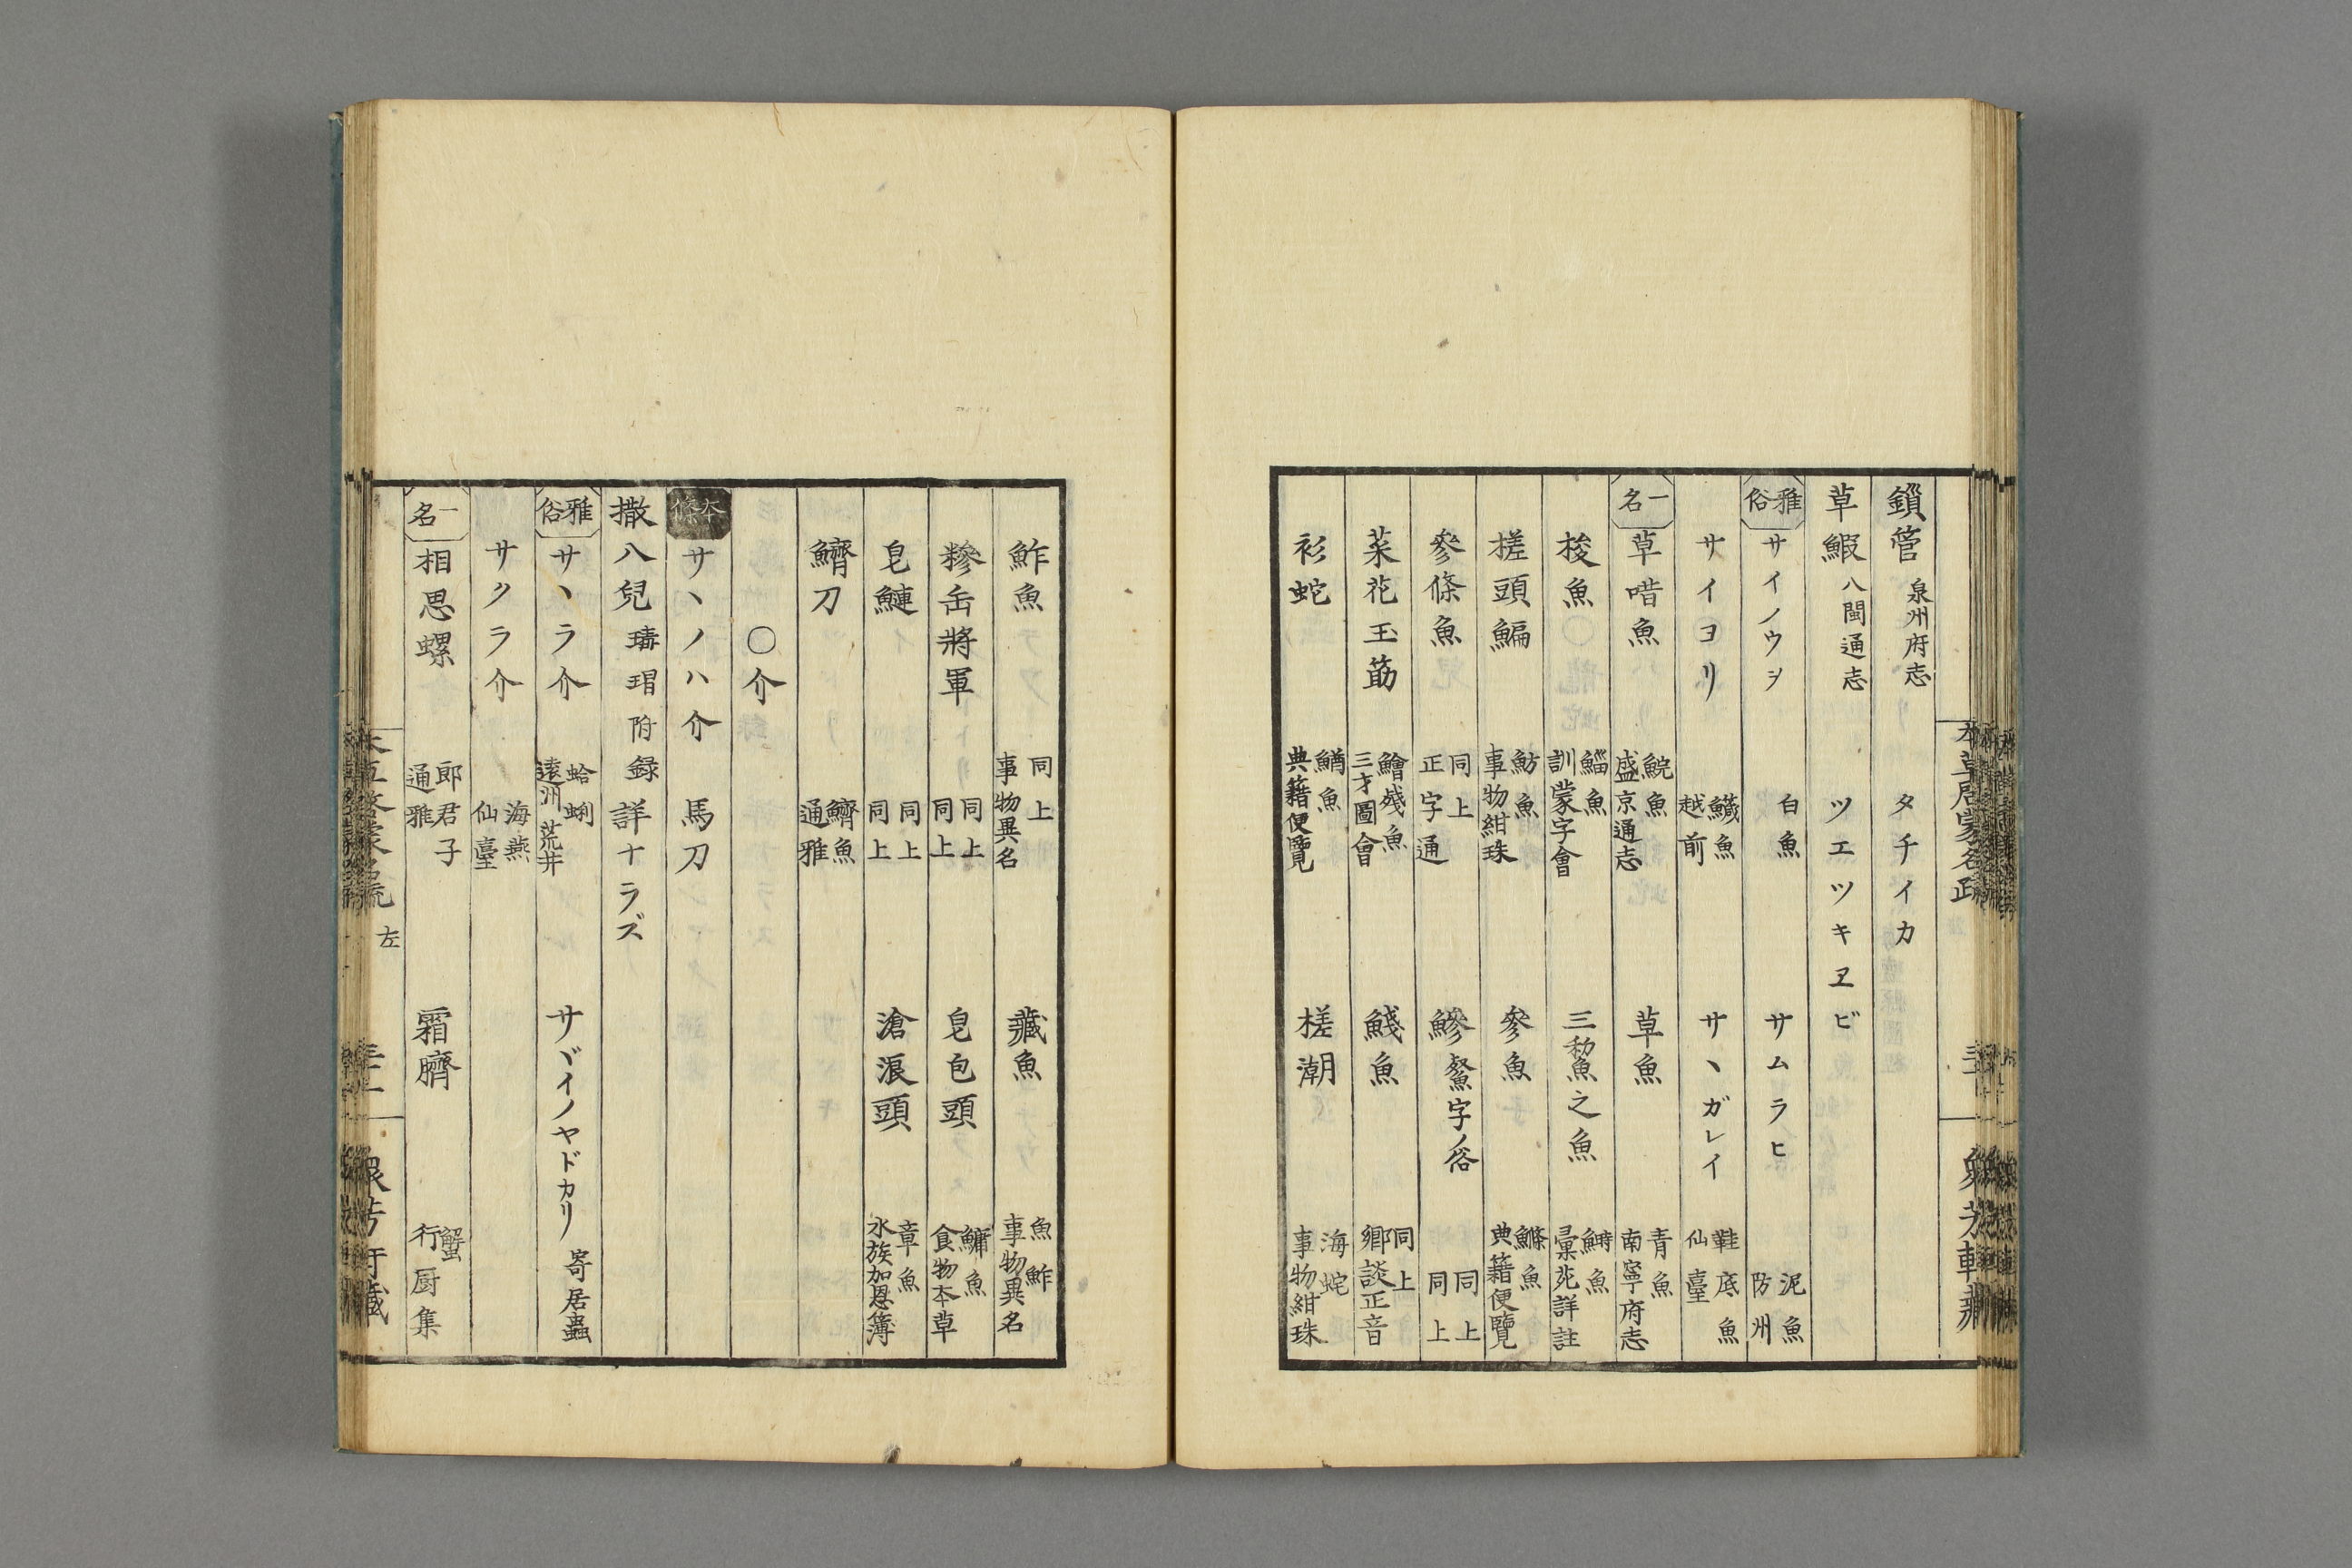 鎖管 泉州府志 タチイカ
草鰕 八閩通志 ツエツキヱビ
雅俗 サイノウヲ 白魚 サムラヒ 泥魚 防州
サイヨリ 鱵魚 越前 サヽガレイ 鞋底魚 仙臺
一名 草㖡魚 鯇魚 盛京通志 草魚 青魚 南寧府志
梭魚 鯔魚 訓蒙字會 三𩵋之魚 鰣魚 彙苑詳註
槎頭鯿 魴魚 事物紺珠 參魚 鰷魚 典籍便覽
參條魚 同上 正字通 鰺 鮝字ノ俗 同上 同上
菜花玉莇 鱠殘魚 三才圖會 䱠魚 同上 鄉談正音
衫蛇 鰌魚 典籍便覽 槎潮 海蛇 事物紺珠
本草啓蒙名疏 衆芳軒藏
鮓魚 同上 事物異名 藏魚 魚鮓 事物異名
糝缶將軍 同上 同上 皂包頭 鱅魚 食物本草
皂鰱 同上 同上 滄浪頭 章魚 水族加恩簿
鱭刀 鱭魚 通雅
〇介
本條 サヽノハ介 馬刀
撒八兒 瑇瑁附録 詳ナラズ
雅俗 サヽラ介 蛤蜊 遠州荒井 サヾイノヤドカリ 寄居蟲
サクラ介 海燕 仙臺
一名 相思螺 郎君子 通雅 霜臍 蟹 行厨集
左